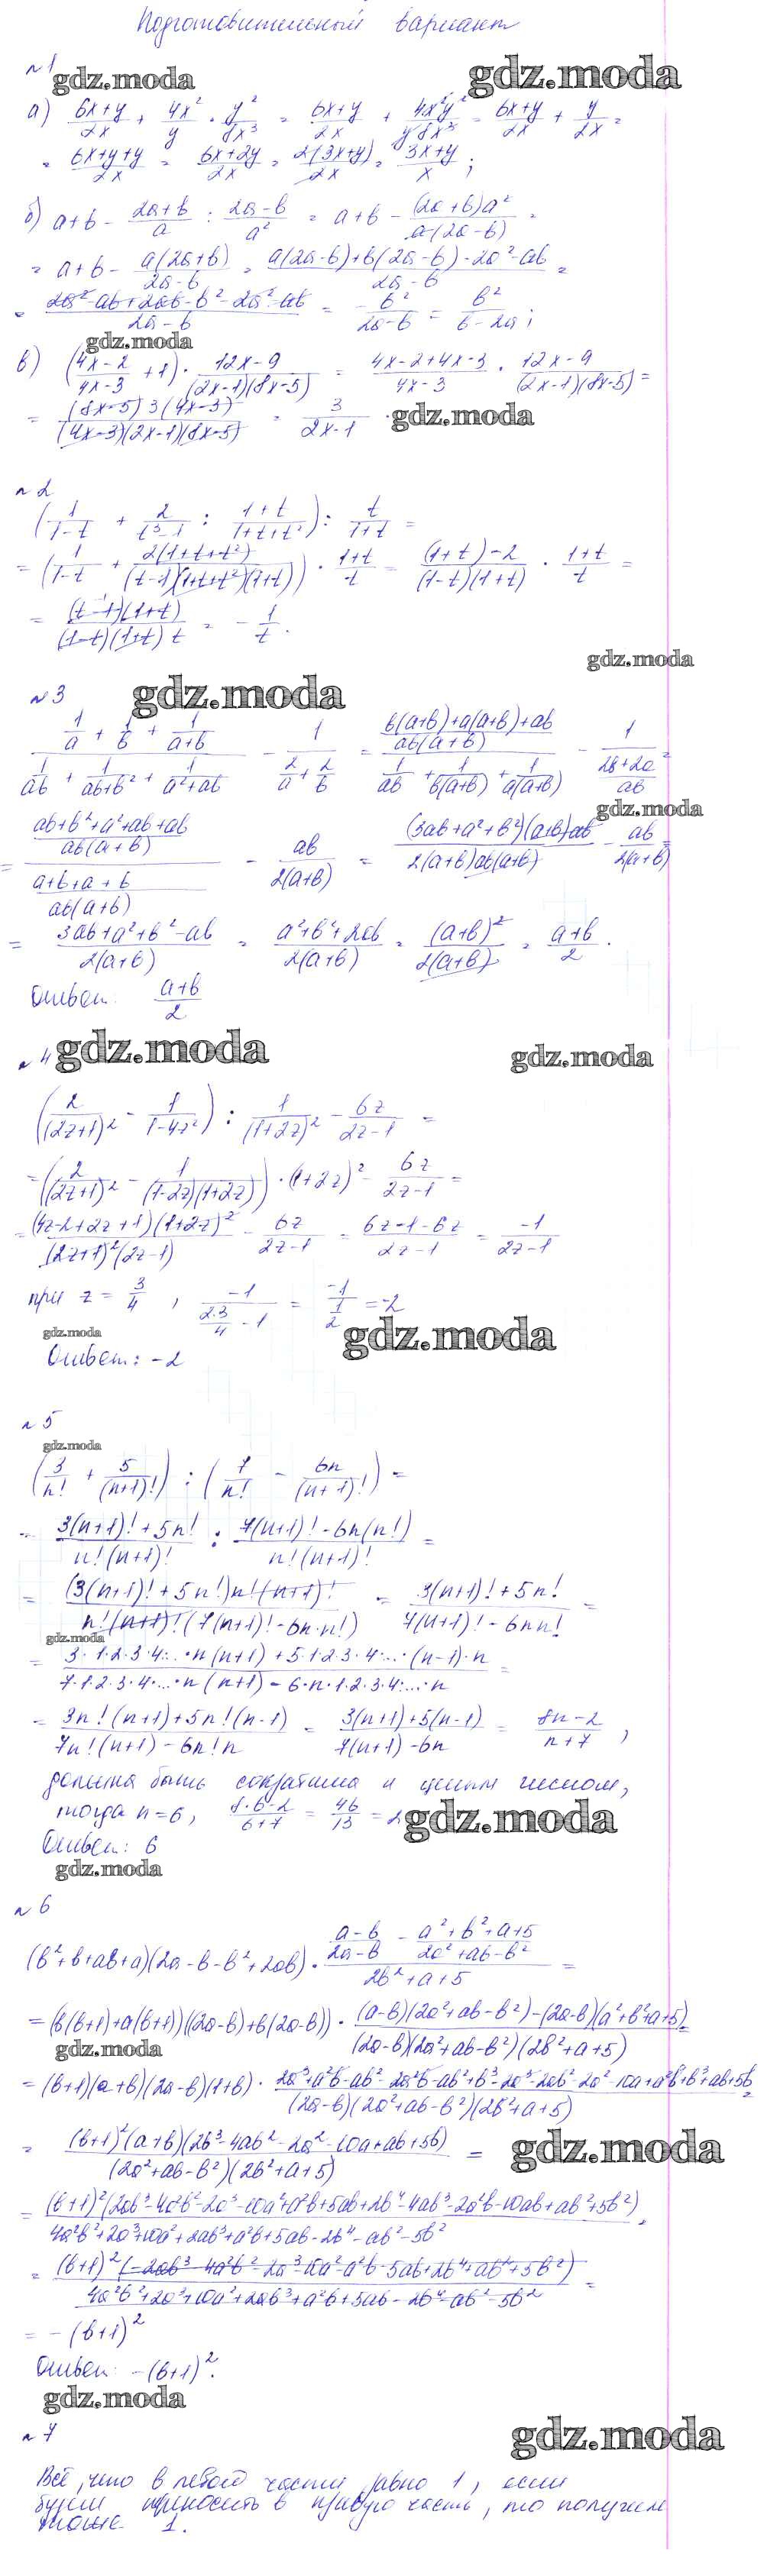 Подготовительный вариант
n1
gdz.moda
gdz.moda
а) (6x+y)/2x + 4x²/y · y²/8x³ = (6x+y)/2x + 4x²y²/y8x³ = (6x+y)/2x + y/2x =
= (6x+y+y)/2x = (6x+2y)/2x = 2(3x+y)/2x = (3x+y)/x ;
б) a+b - (2a+b)/a : (2a-b)/a² = a+b - (2a+b)a²/a(2a-b) =
= a+b - a(2a+b)/(2a-b) = (a(2a-b)+b(2a-b)-2a²-ab)/(2a-b) =
= (2a²-ab+2ab-b²-2a²-ab)/(2a-b) = -b²/(2a-b) = b²/(b-2a) ;
gdz.moda
в) ((4x-2)/(4x-3) + 1) · (12x-9)/(2x-1)(8x-5) = (4x-2+4x-3)/(4x-3) · (12x-9)/(2x-1)(8x-5) =
= (8x-5)3(4x-3)/(4x-3)(2x-1)(8x-5) = 3/(2x-1) .
gdz.moda
n2
(1/(1-t) + 2/(t³-1) : (1+t)/(1+t+t²)) : t/(1+t) =
= (1/(1-t) + 2(1+t+t²)/(t-1)(1+t+t²)(1+t)) · (1+t)/t = ((1+t)-2)/(1-t)(1+t) · (1+t)/t =
= (t-1)(1+t)/(1-t)(1+t)t = -1/t .
gdz.moda
n3
gdz.moda
(1/a + 1/b + 1/(a+b))/(1/ab + 1/(ab+b²) + 1/(a²+ab)) - 1/(2/a + 2/b) = ((b(a+b)+a(a+b)+ab)/ab(a+b))/(1/ab + 1/b(a+b) + 1/a(a+b)) - 1/((2b+2a)/ab) =
gdz.moda
= ((ab+b²+a²+ab+ab)/ab(a+b))/((a+b+a+b)/ab(a+b)) - ab/2(a+b) = (3ab+a²+b²)(a+b)ab/2(a+b)ab(a+b) - ab/2(a+b) =
= (3ab+a²+b²-ab)/2(a+b) = (a²+b²+2ab)/2(a+b) = (a+b)²/2(a+b) = (a+b)/2 .
Ответ: (a+b)/2
n4
gdz.moda
gdz.moda
(2/(2z+1)² - 1/(1-4z²)) : 1/(1+2z)² - 6z/(2z-1) =
= (2/(2z+1)² - 1/(1-2z)(1+2z)) · (1+2z)² - 6z/(2z-1) =
= (4z-2+2z+1)(1+2z)²/(2z+1)²(2z-1) - 6z/(2z-1) = (6z-1-6z)/(2z-1) = -1/(2z-1)
при z = 3/4 , -1/(2·3/4 - 1) = -1/(1/2) = -2
gdz.moda
gdz.moda
Ответ: -2
n5
gdz.moda
(3/n! + 5/(n+1)!) : (7/n! - 6n/(n+1)!) =
= (3(n+1)!+5n!)/n!(n+1)! : (7(n+1)!-6n(n!))/n!(n+1)! =
= (3(n+1)!+5n!)n!(n+1)!/n!(n+1)!(7(n+1)!-6n·n!) = (3(n+1)!+5n!)/(7(n+1)!-6nn!) =
gdz.moda
= (3·1·2·3·4·...·n(n+1)+5·1·2·3·4·...·(n-1)·n)/(7·1·2·3·4·...·n(n+1)-6·n·1·2·3·4·...·n) =
= (3n!(n+1)+5n!(n-1))/(7n!(n+1)-6n!n) = (3(n+1)+5(n-1))/(7(n+1)-6n) = (8n-2)/(n+7) ,
должна быть сократима и целым числом,
тогда n=6, (8·6-2)/(6+7) = 46/13 = 2
gdz.moda
Ответ: 6
gdz.moda
n6
(b²+b+ab+a)(2a-b-b²+2ab) · ((a-b)/(2a-b) - (a²+b²+a+5)/(2a²+ab-b²))/(2b²+a+5) =
= (b(b+1)+a(b+1))((2a-b)+b(2a-b)) · ((a-b)(2a²+ab-b²)-(2a-b)(a²+b²+a+5))/(2a-b)(2a²+ab-b²)(2b²+a+5) =
gdz.moda
= (b+1)(a+b)(2a-b)(1+b) · (2a³+a²b-ab²-2a²b-ab²+b³-2a³-2ab²-2a²-10a+a²b+b³+ab+5b)/(2a-b)(2a²+ab-b²)(2b²+a+5) =
= (b+1)²(a+b)(2b³-4ab²-2a²-10a+ab+5b)/(2a²+ab-b²)(2b²+a+5) =
gdz.moda
= (b+1)²(2ab³-4a²b²-2a³-10a²+a²b+5ab+2b⁴-4ab³-2a²b-10ab+ab²+5b²)/(4a²b²+2a³+10a²+2ab³+a²b+5ab-2b⁴-ab²-5b²) =
= (b+1)²(-2ab³-4a²b²-2a³-10a²-a²b-5ab+2b⁴+ab²+5b²)/(4a²b²+2a³+10a²+2ab³+a²b+5ab-2b⁴-ab²-5b²) =
= -(b+1)²
Ответ: -(b+1)².
gdz.moda
n7
gdz.moda
Всё, что в левой части равно 1, если
будем приносить в правую часть, то получим
тоже 1.